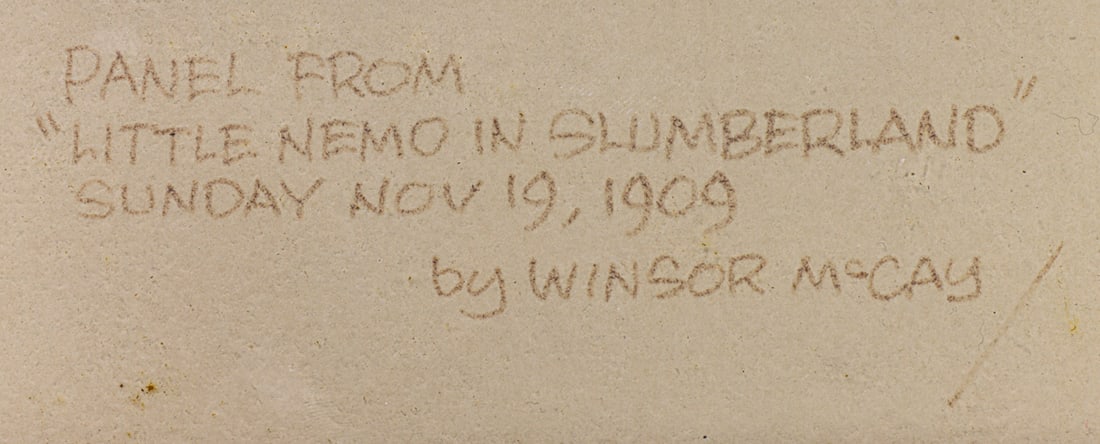 PANEL FROM
"LITTLE NEMO IN SLUMBERLAND"
SUNDAY NOV 19, 1909
by WINSOR McCAY